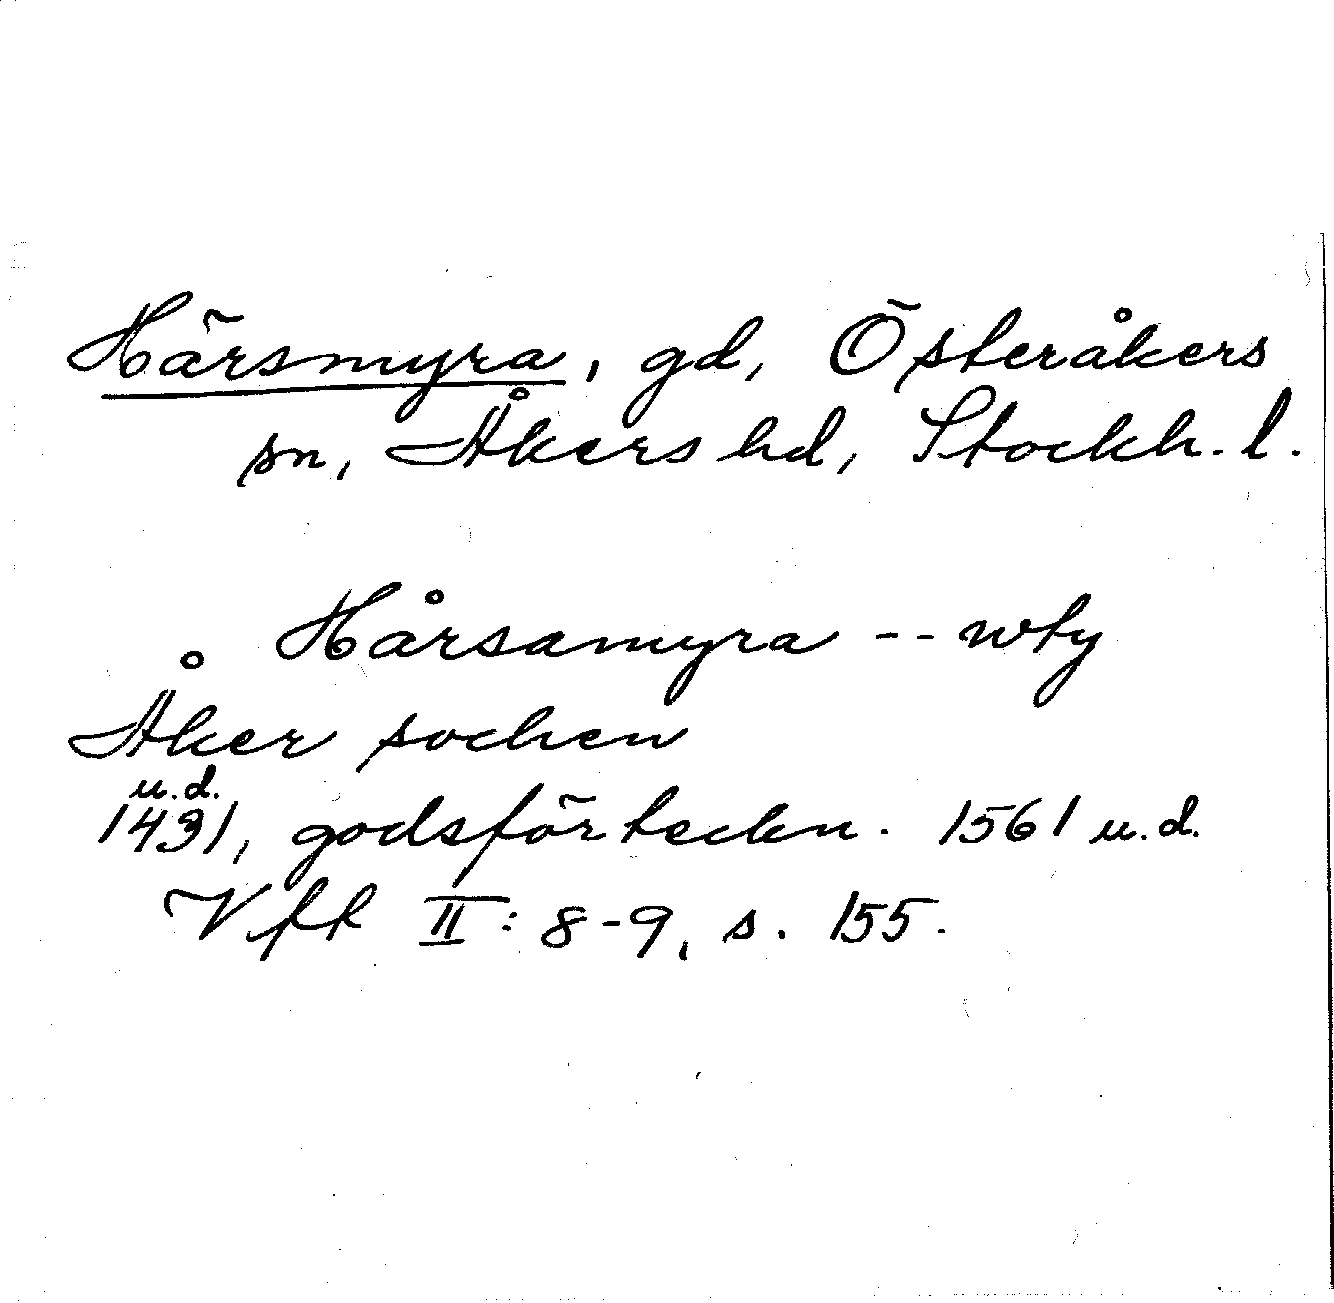 Härsmyra, gd, Österåkers
sn, Åkers hd, Stockh. l.
Hårsamyra -- wty
Åker sochen
u.d.
1431, godsförteckn. 1561 u.d.
Vff II: 8-9, s. 155.